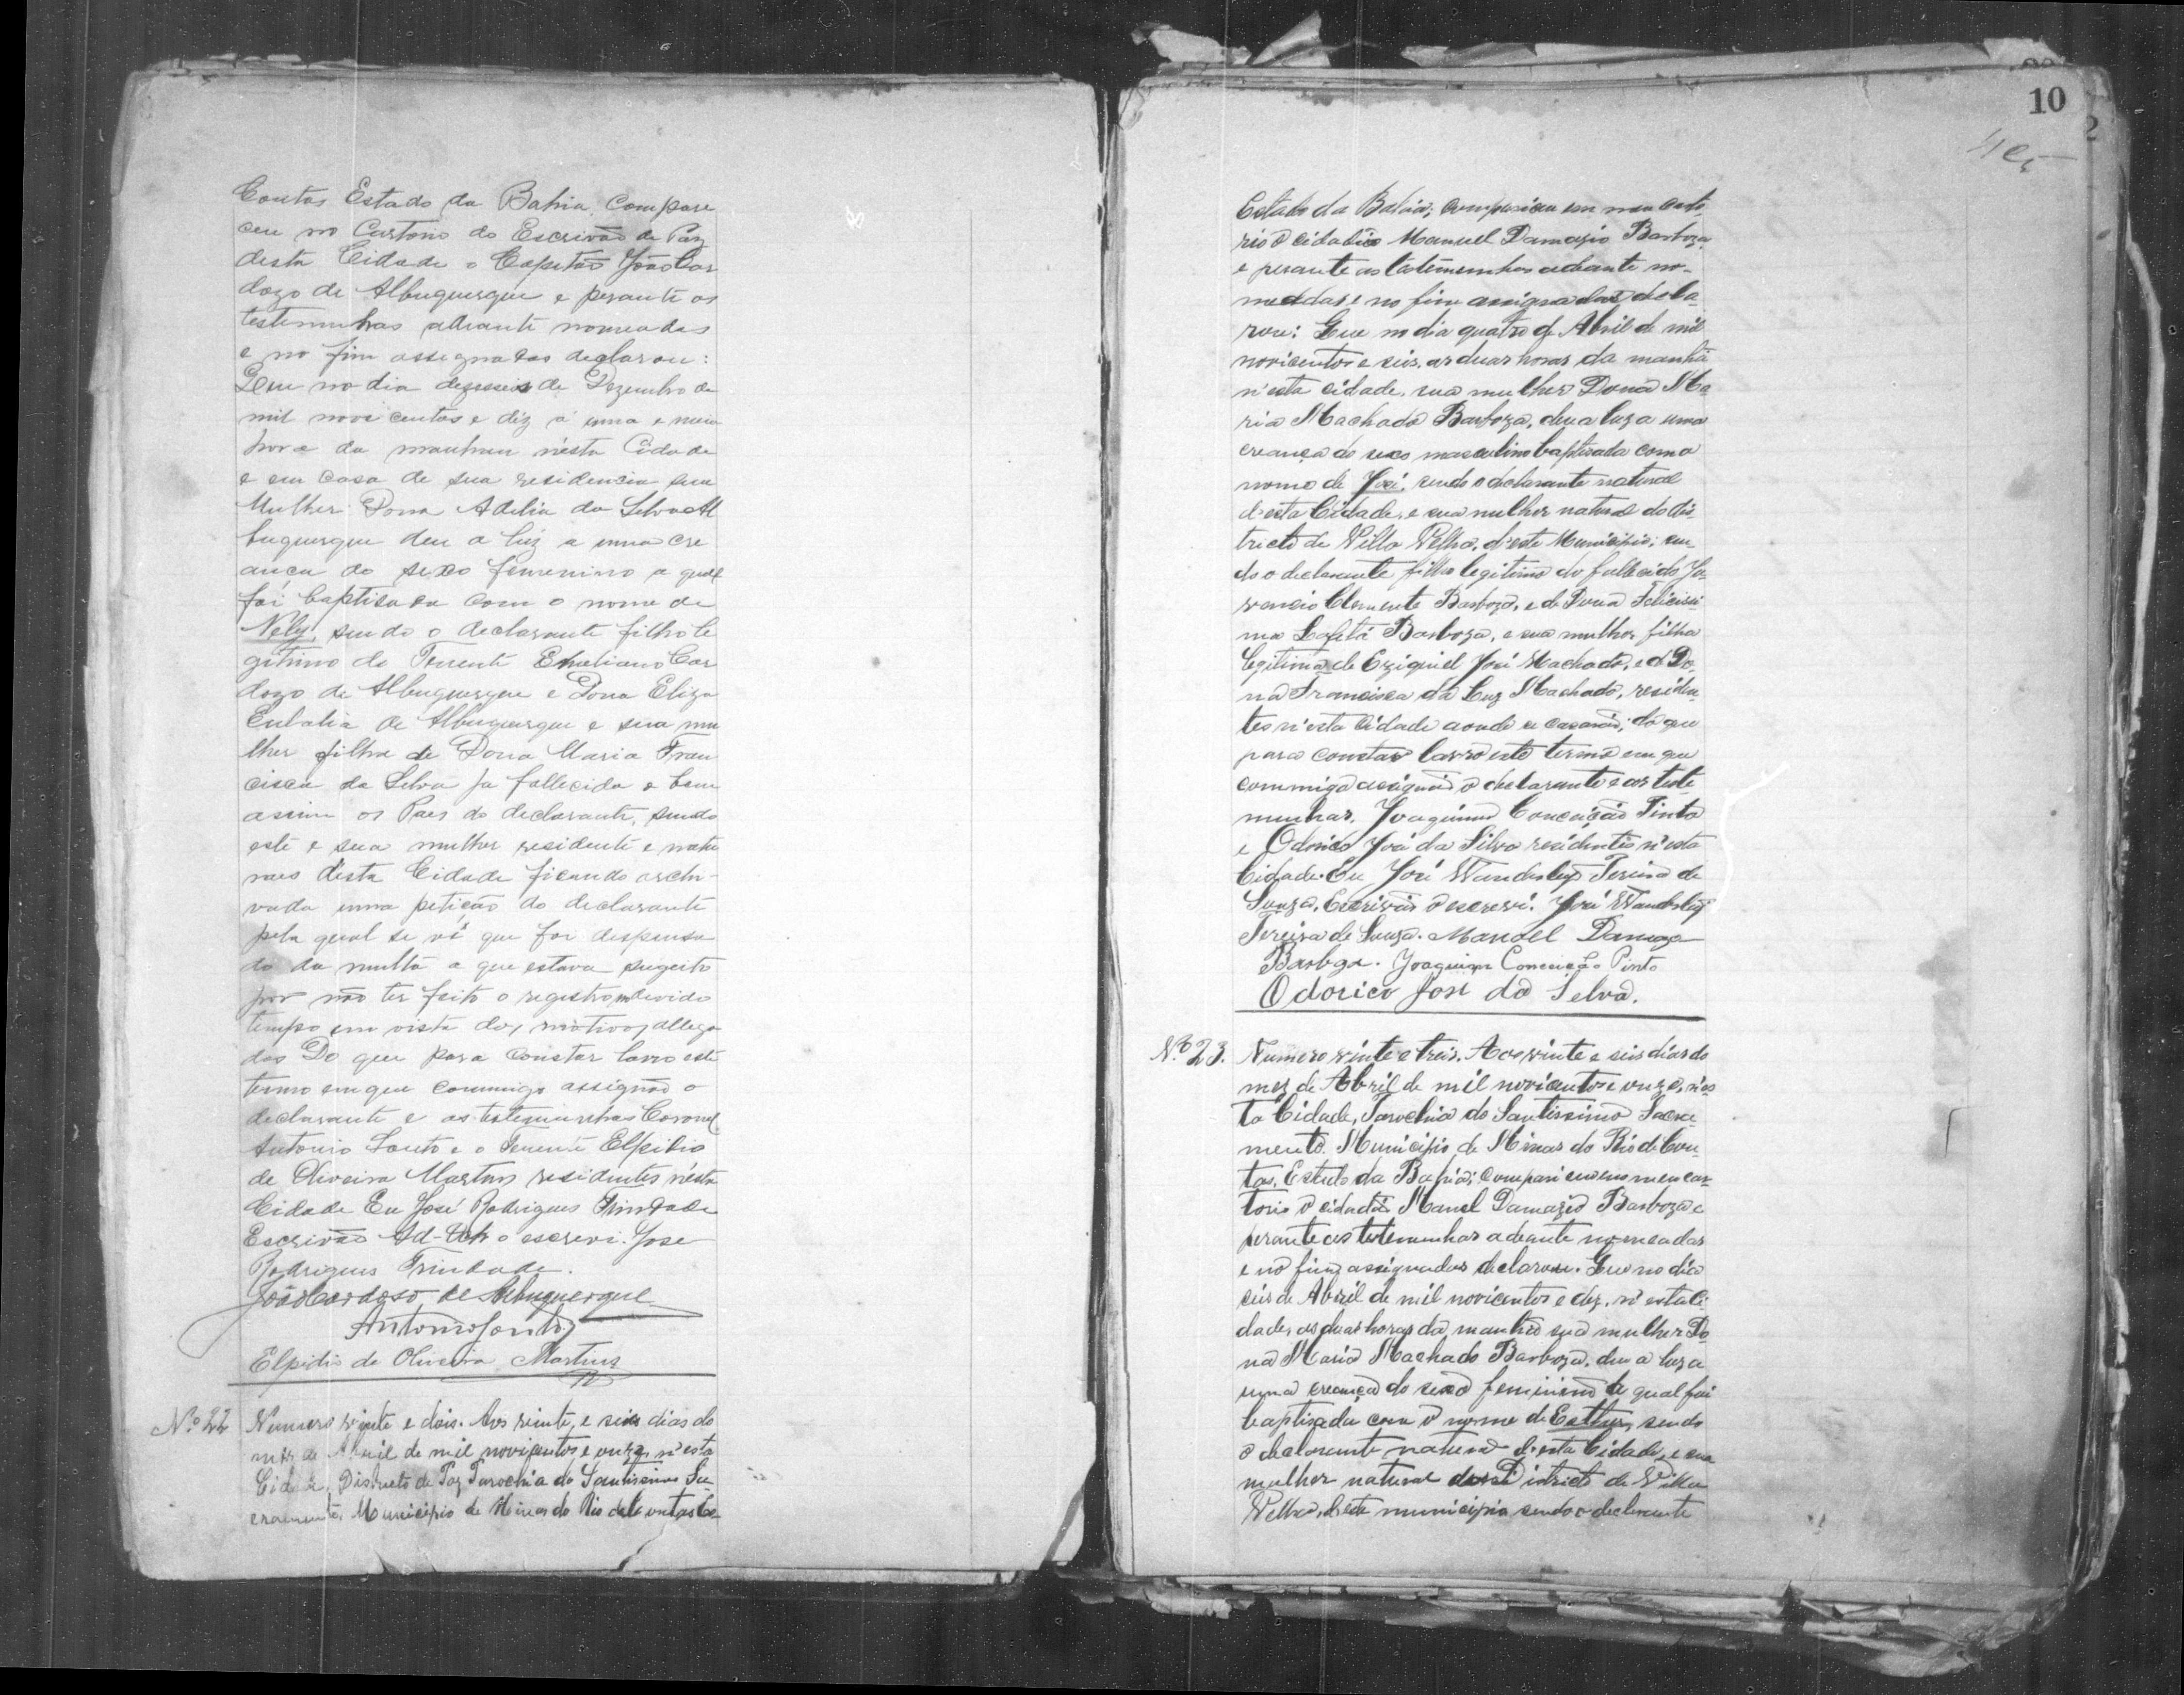 Contas Estado da Bahia, Compare
ceu no Cartorio do Escrivão de Paz
desta Cidade o Capitão João Car
dozo de Albuquerque e perante as
testemunhas adiante nomeadas
e no fim assignadas declarou:
Que no dia dezeseis de Dezembro de
mil nove centos e diz á uma e meia
hora da manhan n'esta Cidade
e em casa de sua residencia sua
Mulher Dona Adelia da Silva Al
buquerque deu a luz a uma cre
ança do sexo femenino a qual
foi baptisada com o nome de
Nely, sendo o declarante filho le
gitimo do Tenente Emiliano Car
dozo de Albuquerque e Dona Eliza
Eulalia de Albuquerque e sua mu
lher filha de Dona Maria Fran
cisca da Silva ja fallecida e bem
assim os Paes do declarante, sendo
este e sua mulher residente e natu
raes desta Cidade ficando archi-
vada uma petição do declarante
pela qual se vê que foi dispensa
do da multa a que estava sugeito
por não ter feito o registro em devido
tempo em vista dos motivos allega
dos Do que para constar lavro este
termo em que commigo assignão o
declarante e as testemunhas Coronel
Antonio Souto e o Tenente Elpidio
de Oliveira Martins residentes n'esta
Cidade Eu José Rodrigues Trindade
Escrivão Ad-hoc o escrevi. Jose
Rodrigues Trindade.
João Cardoso de Albuquerque
Antonio Souto
Elpidio de Oliveira Martins
Nº 22 Numero vinte e dois. Aos vinte e seis dias do
mez de Abril de mil novicentos e onze, n'esta
Cidade, Districto de Paz Parochia do Santissimo Sa-
cramento, Municipio de Minas do Rio de Contas Es-
10
Estado da Bahia; compareceu em meu carto-
rio o cidadão Manuel Damazio Barboza
e perante as testemunhas adeante no-
meadas e no fim assignadas decla-
rou: Que no dia quatro de Abril de mil
novicentos e seis, as duas horas da manhã
n'esta cidade, sua mulher Dona Ma
ria Machado Barboza, deu a luz a uma
creança do sexo masculino baptisada com o
nome de José, sendo o declarante natural
d'esta Cidade, e sua mulher natural do dis
tricto de Villa Velha, d'este Municipio; sen-
do o declarante filho legitimo do fallecido Ju-
vencio Clemente Barboza, e de Dona Felicissi
ma Barboza, e sua mulher filha
legitima de Eziquiel José Machado, e de Do-
na Francisca da Luz Machado, residen-
tes n'esta cidade aonde se casarão; do que
para constar lavro este termo em que
commigo assignão o declarante e as teste
munhas, Joaquim Conceição Pinto
e Odorico José da Silva residentes n'esta
Cidade. Eu José Wanderley Pereira de
Souza, Escrivão o escrevi. José Wanderley
Pereira de Souza. Manoel Damazo
Barboza. Joaquim Conceição Pinto
Odorico José da Silva.
Nº 23. Numero vinte e treis. Aos vinte e seis dias do
mez de Abril de mil novicentos e onze, n'es
ta Cidade, Parochia do Santissimo Sacra
mento. Municipio de Minas do Rio de Con-
tas, Estado da Bahia; compareceu em meu car-
torio o cidadão Manoel Damazio Barboza e
perante as testemunhas adeante nomeadas
e no fim assignadas declarou. Que no dia
seis de Abril de mil novicentos e dez, n'esta Ci-
dade, as duas horas da manhã sua mulher Do
na Maria Machado Barboza, deu a luz a
uma creança do sexo feminino a qual foi
baptisada com o nome de Esther, sendo
o declarante natural d'esta Cidade, e sua
mulher natural do Districto de Villa
Velha, d'este municipio sendo o declarante